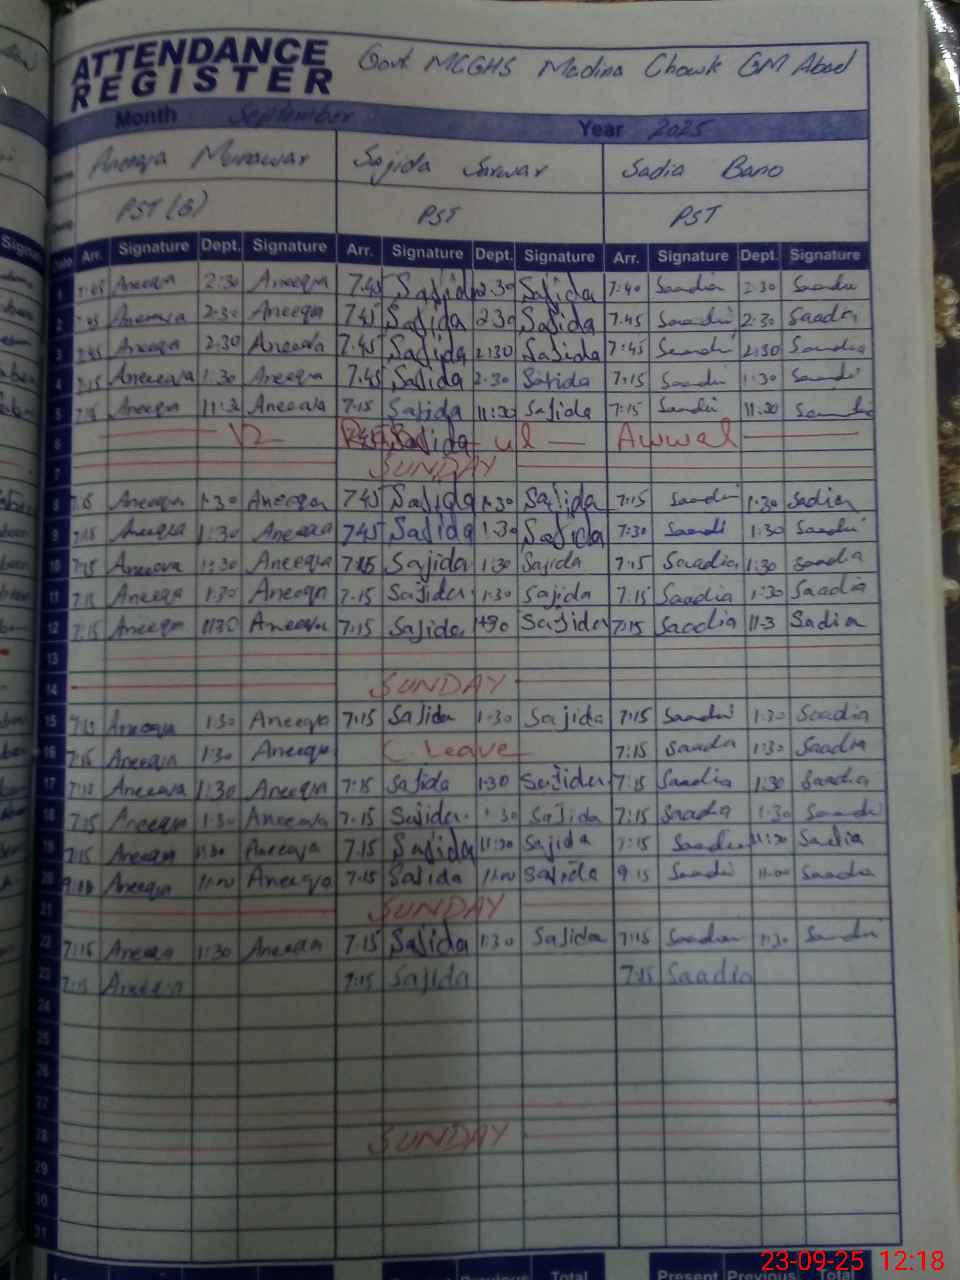 ATTENDANCE REGISTER
Govt MCGHS Madina Chowk GM Abad
Month September Year 2025
Aneeqa Munawar Sajida Sarwar Sadia Bano
PST (G) PST PST
Arr. Signature Dept. Signature Arr. Signature Dept. Signature Arr. Signature Dept. Signature
1 7:45 Aneeqa 2:30 Aneeqa 7.45 Sajida 2.30 Sajida 7:40 Saadia 2:30 Saadia
2 7:45 Aneeqa 2:30 Aneeqa 7.45 Sajida 2.30 Sajida 7.45 Saadia 2:30 Saadia
3 7:45 Aneeqa 2:30 Aneeqa 7.45 Sajida 2:30 Sajida 7:45 Saadia 2:30 Saadia
4 Aneeqa 1:30 Aneeqa 7.45 Sajida 2.30 Sajida 7:15 Saadia 1:30 Saadia
5 7:15 Aneeqa 11:30 Aneeqa 7:15 Sajida 11:30 Sajida 7:15 Saadia 11:30 Saadia
6 12 Sajida ul Awwal
7 SUNDAY
8 7:15 Aneeqa 1:30 Aneeqa 7.45 Sajida 1:30 Sajida 7:15 Saadia 1:30 Sadia
9 7:15 Aneeqa 1:30 Aneeqa 7.45 Sajida 1:30 Sajida 7:30 Saadi 1:30 Saadia
10 7:15 Aneeqa 1:30 Aneeqa 7:15 Sajida 1:30 Sajida 7:15 Saadia 1:30 Saadia
11 7:15 Aneeqa 1:30 Aneeqa 7.15 Sajida 1:30 Sajida 7:15 Saadia 1:30 Saadia
12 7:15 Aneeqa 1130 Aneeqa 7:15 Sajida Sajida 7:15 Saadia 11-3 Sadia
13
14 SUNDAY
15 7:15 Aneeqa 1:30 Aneeqa 7:15 Sajida 1:30 Sajida 7:15 Saadia 1:30 Saadia
16 7:15 Aneeqa 1:30 Aneeqa C. Leave 7:15 Saadia 1:30 Saadia
17 7:15 Aneeqa 1:30 Aneeqa 7:15 Sajida 1:30 Sajida 7:15 Saadia 1:30 Saadia
18 7:15 Aneeqa 1:30 Aneeqa 7.15 Sajida 1:30 Sajida 7:15 Saadia 1:30 Saadia
19 7:15 Aneeqa 11:30 Aneeqa 7.15 Sajida 11:30 Sajida 7:15 Saadia 11:30 Sadia
20 Aneeqa 11:00 Aneeqa 7:15 Sajida 11:00 Sajida 9:15 Saadi 11:00 Saadia
21 SUNDAY
22 7:15 Aneeqa 1:30 Aneeqa 7:15 Sajida 1:30 Sajida 7:15 Saadia 1:30 Saadia
23 7:15 Aneeqa 7:15 Sajida 7:15 Saadia
24
25
26
27
28 SUNDAY
29
30
31
Total Present Previous Total
23-09-25 12:18